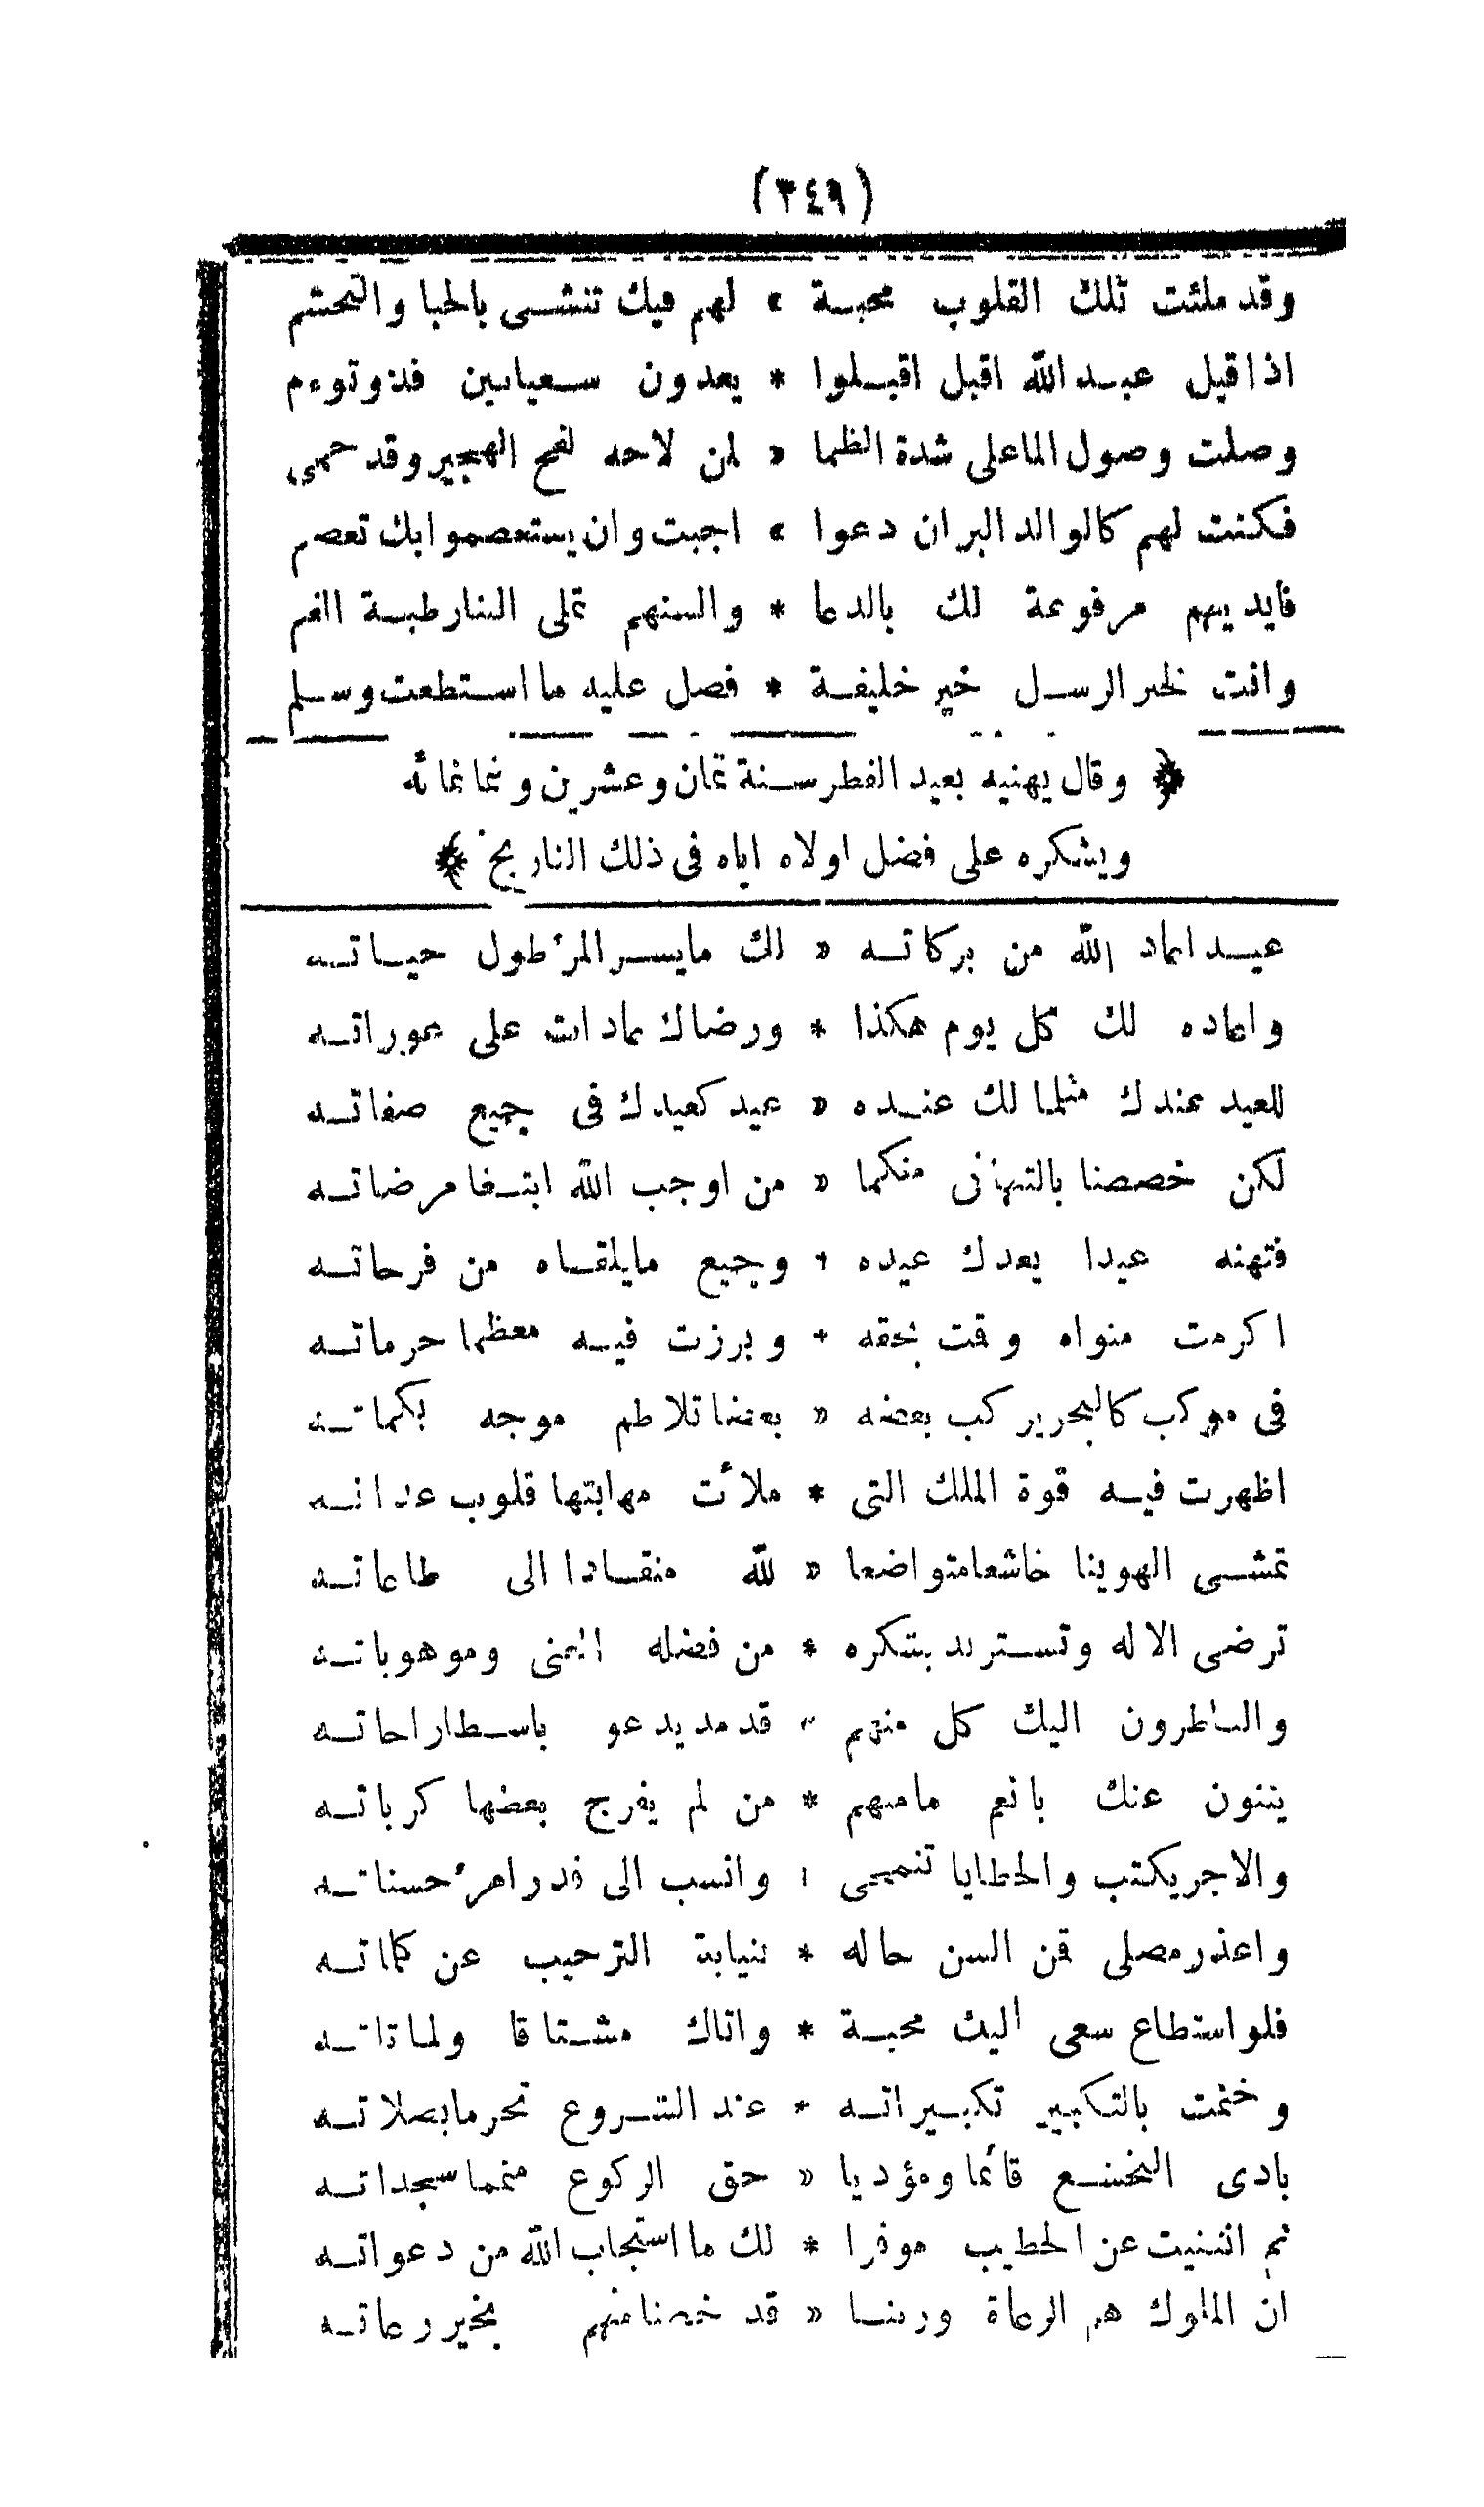 (٣٤٩)
وقد ملئت تلك القلوب محبة * لهم فيك تنشى بالحبا والتحشم
اذا قيل عبد الله اقبل اقبلوا * يعدون سعيا بين فذ وتوءم
وصلت وصول الما على شدة الظما * لمن لاحه لفح الهجير وقد حمى
فكنت لهم كالوالد البر ان دعوا * اجبت وان يستعصموا بك تعصم
فايديهم مرفوعة لك بالدعا * والسنهم تملى الثنا رطبة الفم
وانت لخير الرسل خير خليفة * فصل عليه ما استطعت وسلم
﴿ وقال يهنيه بعيد الفطر سنة ثمان وعشرين وثمانمائه
ويشكره على فضل اولاه اياه فى ذلك التاريخ ﴾
عيد اعاد الله من بركاته * لك ما يسر المرء طول حياته
واعاده لك كل يوم هكذا * ورضاك عادات على عوراته
للعيد عندك مثلما لك عنده * عيد كعيدك فى جميع صفاته
لكن خصصنا بالتهانى منكما * من اوجب الله ابتغا مرضاته
فتهنه عيدا يعدك عيده * وجميع ما يلقاه من فرحاته
اكرمت مثواه وقت بحقه * وبرزت فيه معظما حرماته
فى موكب كالبحر يركب بعضه * بعضا تلاطم موجه بكماته
اظهرت فيه قوة الملك التى * ملأت مهابتها قلوب عداته
تمشى الهوينا خاشعا متواضعا * لله منقادا الى طاعاته
ترضى الاله وتستزيد بشكره * من فضله اليمنى وموهوباته
والناظرون اليك كل منهم * قد مد يدعو باسطا راحاته
يثنون عنك بانعم ما منهم * من لم يفرج بعضها كرباته
والاجر يكتب والخطايا تنمحى * وانسب الى قدر امرء حسناته
واعذر مصلى قمن السن حاله * نيابة الترحيب عن كلماته
فلو استطاع سعى اليك محبة * واتاك مشتاقا ولما تاته
وختمت بالتكبير تكبيراته * عند الشروع تحرما بصلاته
بادى التخشع قائما ومؤديا * حق الركوع متمما سجداته
ثم انثنيت عن الخطيب موفرا * لك ما استجاب الله من دعواته
ان الملوك هم الرعاة وربنا * قد خصنا منهم بخير رعاته